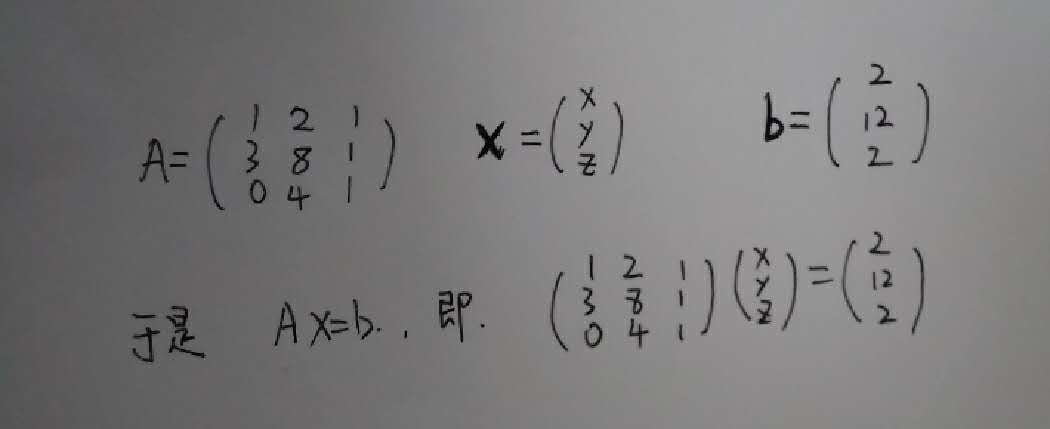 A=(1 2 1 / 3 8 1 / 0 4 1) X=(x / y / z) b=(2 / 12 / 2)
于是 AX=b., 即. (1 2 1 / 3 8 1 / 0 4 1)(x / y / z)=(2 / 12 / 2)